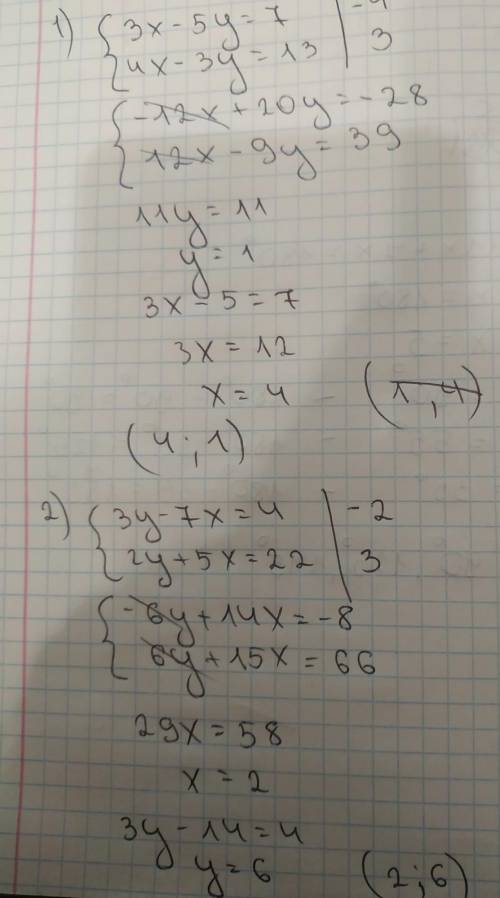 1) { 3x - 5y = 7 | -4
4x - 3y = 13 | 3
{ -12x + 20y = -28
12x - 9y = 39
11y = 11
y = 1
3x - 5 = 7
3x = 12
x = 4 (1, 4)
(4; 1)
2) { 3y - 7x = 4 | -2
2y + 5x = 22 | 3
{ -6y + 14x = -8
6y + 15x = 66
29x = 58
x = 2
3y - 14 = 4
y = 6 (2; 6)